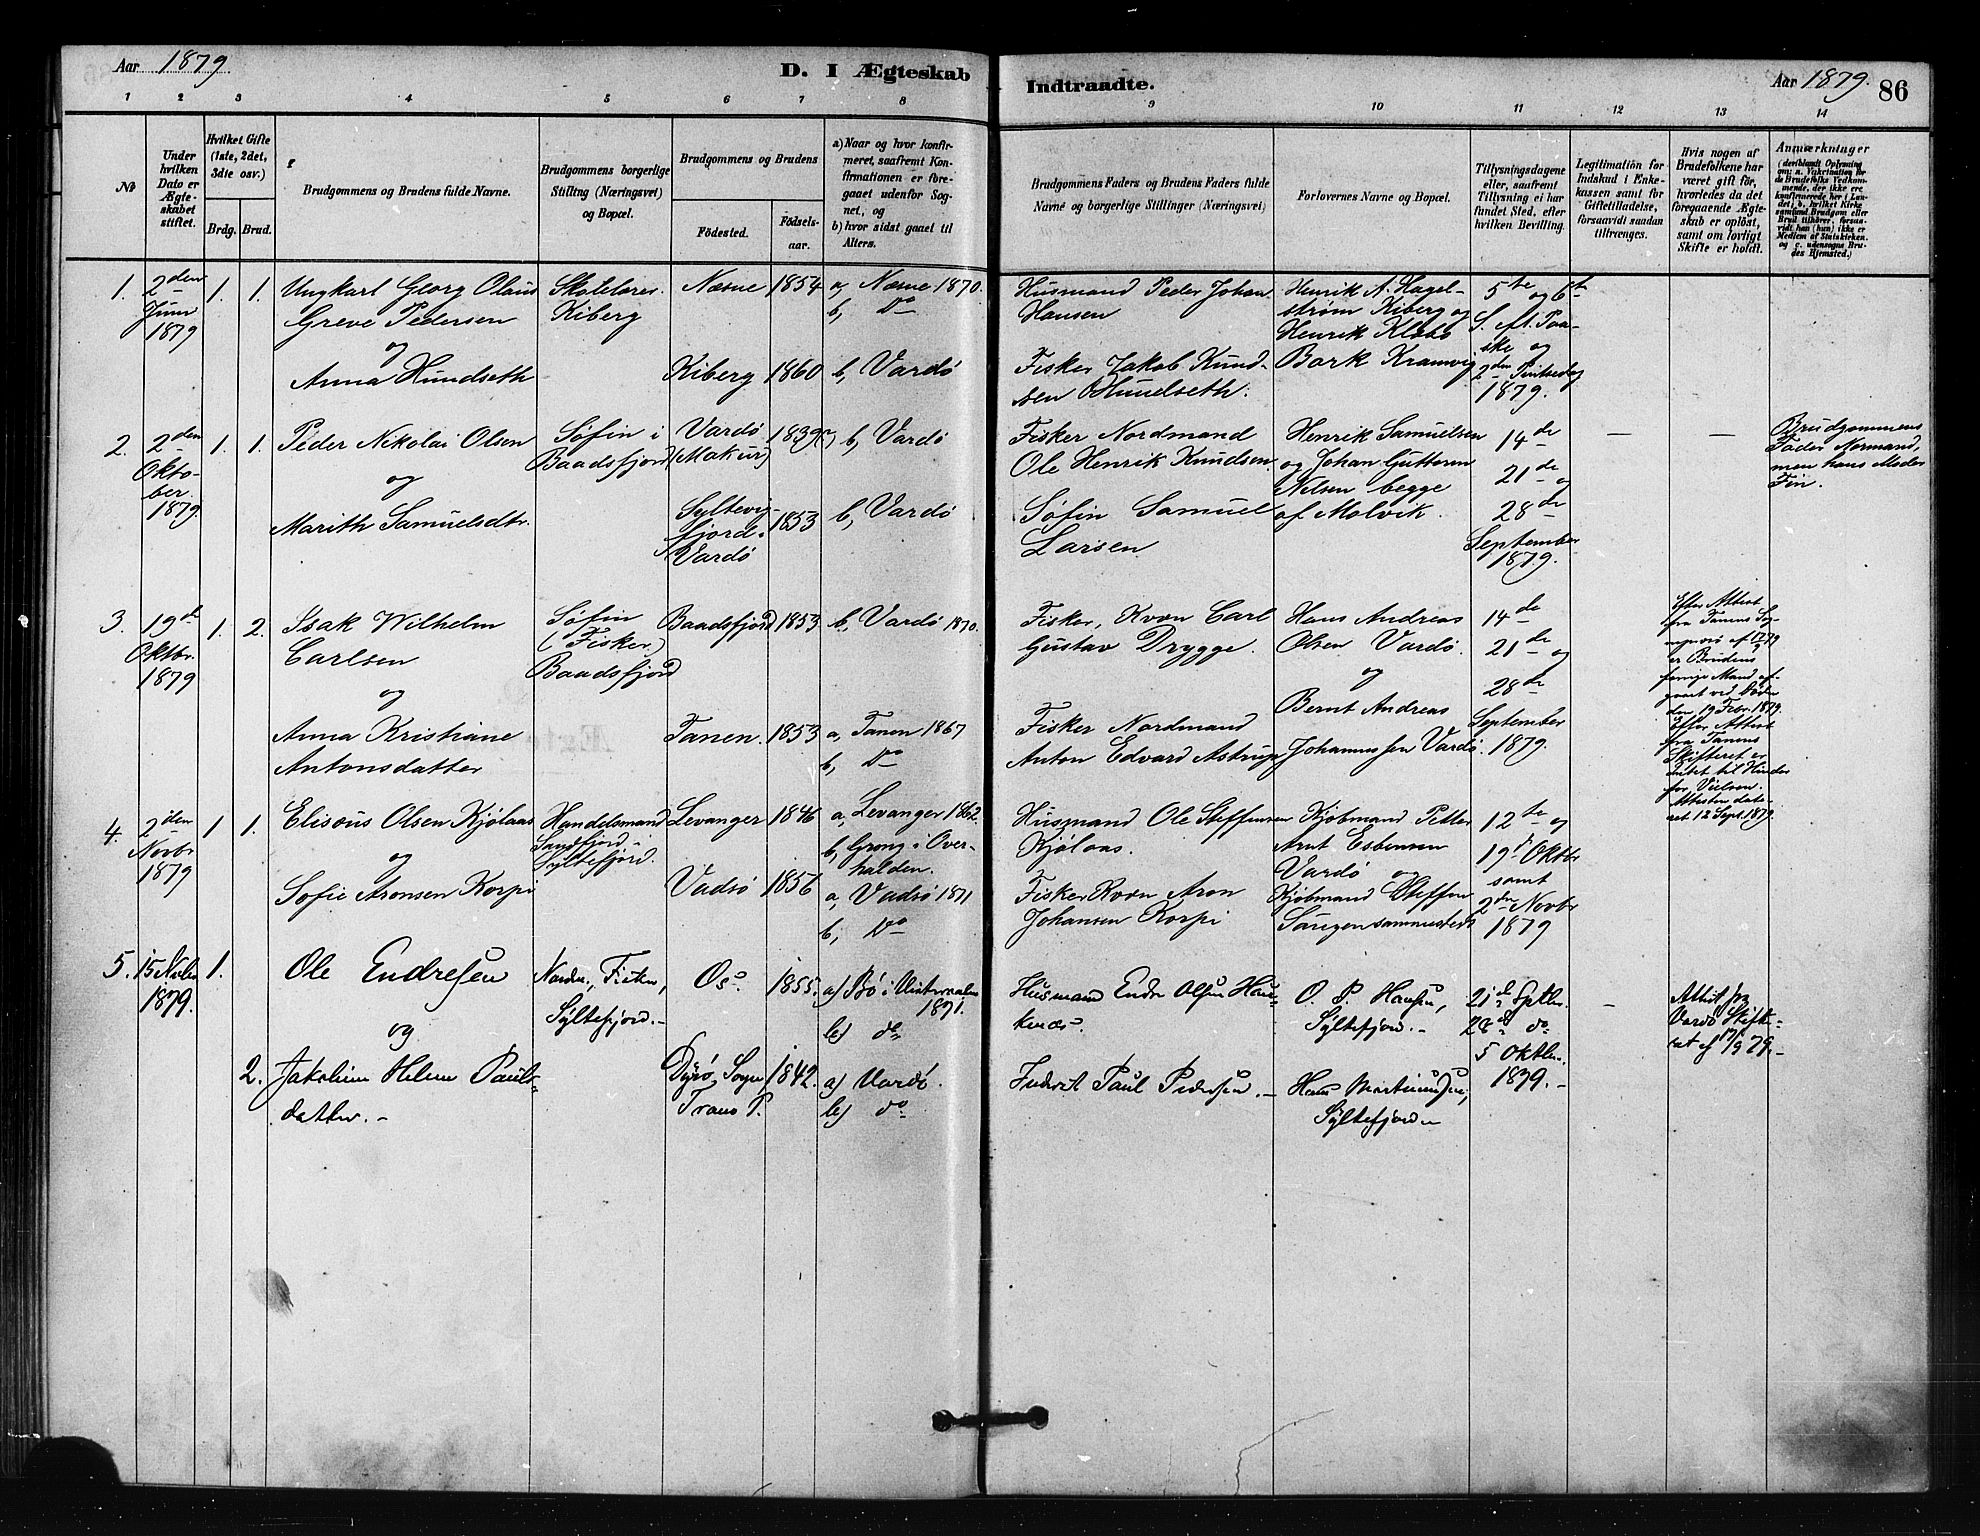 Aar 1879
D. I Ægteskab
Indtraadte.
Aar 1879. 86
1 2 3 4 5 6 7 8 9 10 11 12 13 14
No
Under hvilken Dato er Ægteskabet stiftet.
Hvilket Gifte (1ste, 2det, 3die osv.)
Brdg. Brud.
Brudgommens og Brudens fulde Navne.
Brudgommens borgerlige Stilling (Næringsvei) og Bopæl.
Brudgommens og Brudens
Födested. Födsels-aar.
a) Naar og hvor konfirmeret, saafremt Konfirmationen er foregaaet udenfor Sognet, og
b) hvor sidst gaaet til Alters.
Brudgommens Faders og Brudens Faders fulde Navne og borgerlige Stillinger (Næringsvei)
Forlovernes Navne og Bopæl.
Tillysningsdagene eller, saafremt Tillysning ei har fundet Sted, efter hvilken Bevilling.
Legitimation for Indskud i Enkekassen samt for Giftetilladelse, forsaavidt saadan tiltrænges.
Hvis nogen af Brudefolkene har været gift för, hvorledes da det foregaaende Ægteskab er oplöst, samt om lovligt Skifte er holdt.
Anmærkninger
(deriblandt Oplysning om: a. Vakcination for de Brudefolks Vedkommende, der ikke ere konfirmerede her i Landet; b. hvilket Kirkesamfund Brudgom eller Brud tilhörer, forsaavidt han (hun) ikke er Medlem af Statskirken. og c. udensogns Brudes Hjemsted.)
1. 2den Juni 1879 1. 1.
Ungkarl Georg Olaus
Greve Pedersen
og
Anna Hundseth
Skolelærer
Kiberg
Næsne 1854 a, Næsne 1870.
b, Do
Kiberg 1860 b, Vardö
Husmand Peder Johan
Hansen
Fisker Jakob Knud-
sen Hundseth.
Henrik A. Hagel-
strøm Kiberg og
Henrik Klæbo
Bork Kramvig
5te og 6te
S. eft. Paa-
ske og
2den Pintsedag
1879.
2. 2den Oktober. 1879. 1. 1.
Peder Nikolai Olsen
og
Marith Samuelsdtr.
Søfin i
Baadsfjord
Vardö
(Makur)
1839 b, Vardö
Syltevig-
fjord.
Vardö
1853 b, Vardö
Fisker Nordmand
Ole Henrik Knudsen
Søfin Samuel
Larsen
Henrik Samuelsen
og Johan Gutteren
Nilsen begge
af Molvik.
14de
21de og
28de
September
1879.
— —
Brudgommens
Fader Normand,
men hans Moder
Fin.
3. 19de Oktbr. 1879 1. 2.
Isak Wilhelm
Carlsen
og
Anna Kristiane
Antonsdatter
Søfin
(Fisker)
Baadsfjord
Baadsfjord 1853 b, Vardö 1870.
Tanen. 1853 a, Tanen 1867
b, Do
Fisker, Kvæn Carl
Gustav Drygge.
Fisker Nordmand
Anton Edvard Astrup
Hans Andreas
Olsen Vardö.
og
Bernt Andreas
Johannessen Vardö.
14de
21de og
28de
September
1879.
Efter Attest
fra Tanens
er Brudens
forrige Mand af-
gaaet ved Döden
den 19 Febr. 1879.
Efter Attest
fra Tanens
Skifteret er
Intet til Hinder
for Vielsen.
Attesten date-
ret 12 Sept. 1879.
4. 2den Novbr 1879 1 1.
Elisæus Olsen Kjølaas
og
Sofie Aronsen Korpi
Handelsmand
Sandfjord -
Syltefjord.
Levanger 1846 a, Levanger 1862.
b, Grong i Over-
halden.
Vadsö 1856 a, Vadsö 1871
b, Do
Husmand Ole Steffensen
Kjølaas.
Fisker Kvæn Aron
Johansen Korpi
Kjöbmand Petter
Arnt Esbensen
Vardö og
Kjöbmand Steffen
Sørgen sammesteds
12te og
19de Oktbr
samt
2den Novbr
1879
5. 15 Novbr 1879. 1.
Ole Endresen
og
2. Jakobine Helene Pauls-
datter. -
Nordm., Fisker,
Syltefjord. -
Os. 1855. a) Bö i Vesteraalen
1871.
b) do.
Dyrö, Sogn
Tranö P.
1842. a) Vardö.
b) do
Husmand Endre Olsen Hau-
kenæs.
Inderst Paul Pedersen. -
O. P. Hansen,
Syltefjord. -
Hans Martinussen,
Syltefjord -
21de Septbr.
28de do
5 Oktbr.
1879. -
—
Attest fra
Vardö Skifte-
ret af 79. -